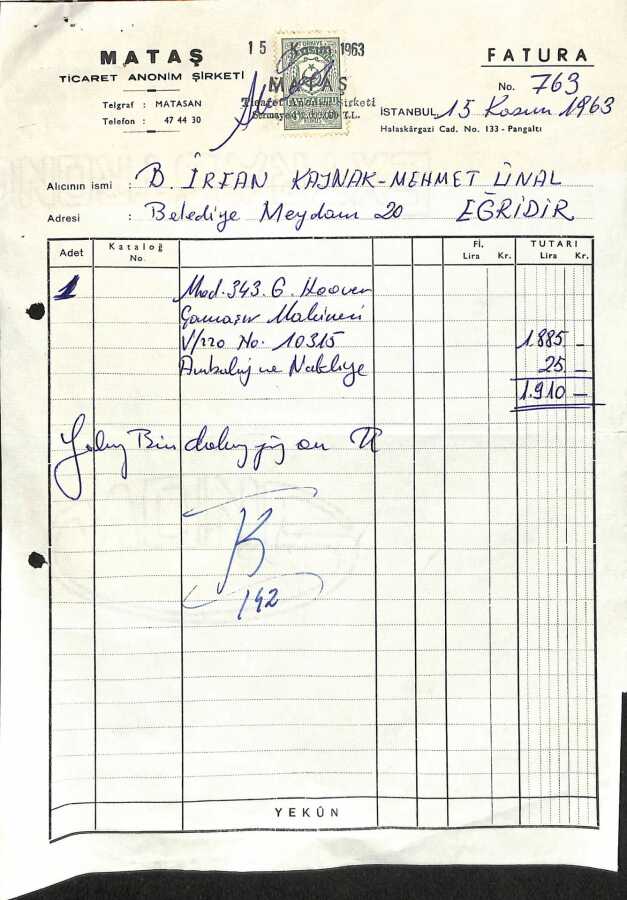 MATAŞ
TİCARET ANONİM ŞİRKETİ
Telgraf : MATASAN
Telefon : 47 44 30
15 K 1963
TÜRKİYE
MATAŞ
Ticaret Anonim Şirketi
Sermaye T.L.
FATURA
No. 763
İSTANBUL, 15 Kasım 1963
Halaskârgazi Cad. No. 133 - Pangaltı
Alıcının ismi : B. İRFAN KAYNAK-MEHMET ÜNAL
Adresi : Belediye Meydanı 20 EĞRİDİR
Adet Kataloğ No. Fİ. Lira Kr. TUTARI Lira Kr.
1 Mod. 343. G. Hoover
Çamaşır Makinesi
V/220 No. 10315 1.885 _
Ambalaj ve Nakliye 25 _
1.910 _
Yalnız Bin dokuz yüz on TL
K
142
YEKÛN